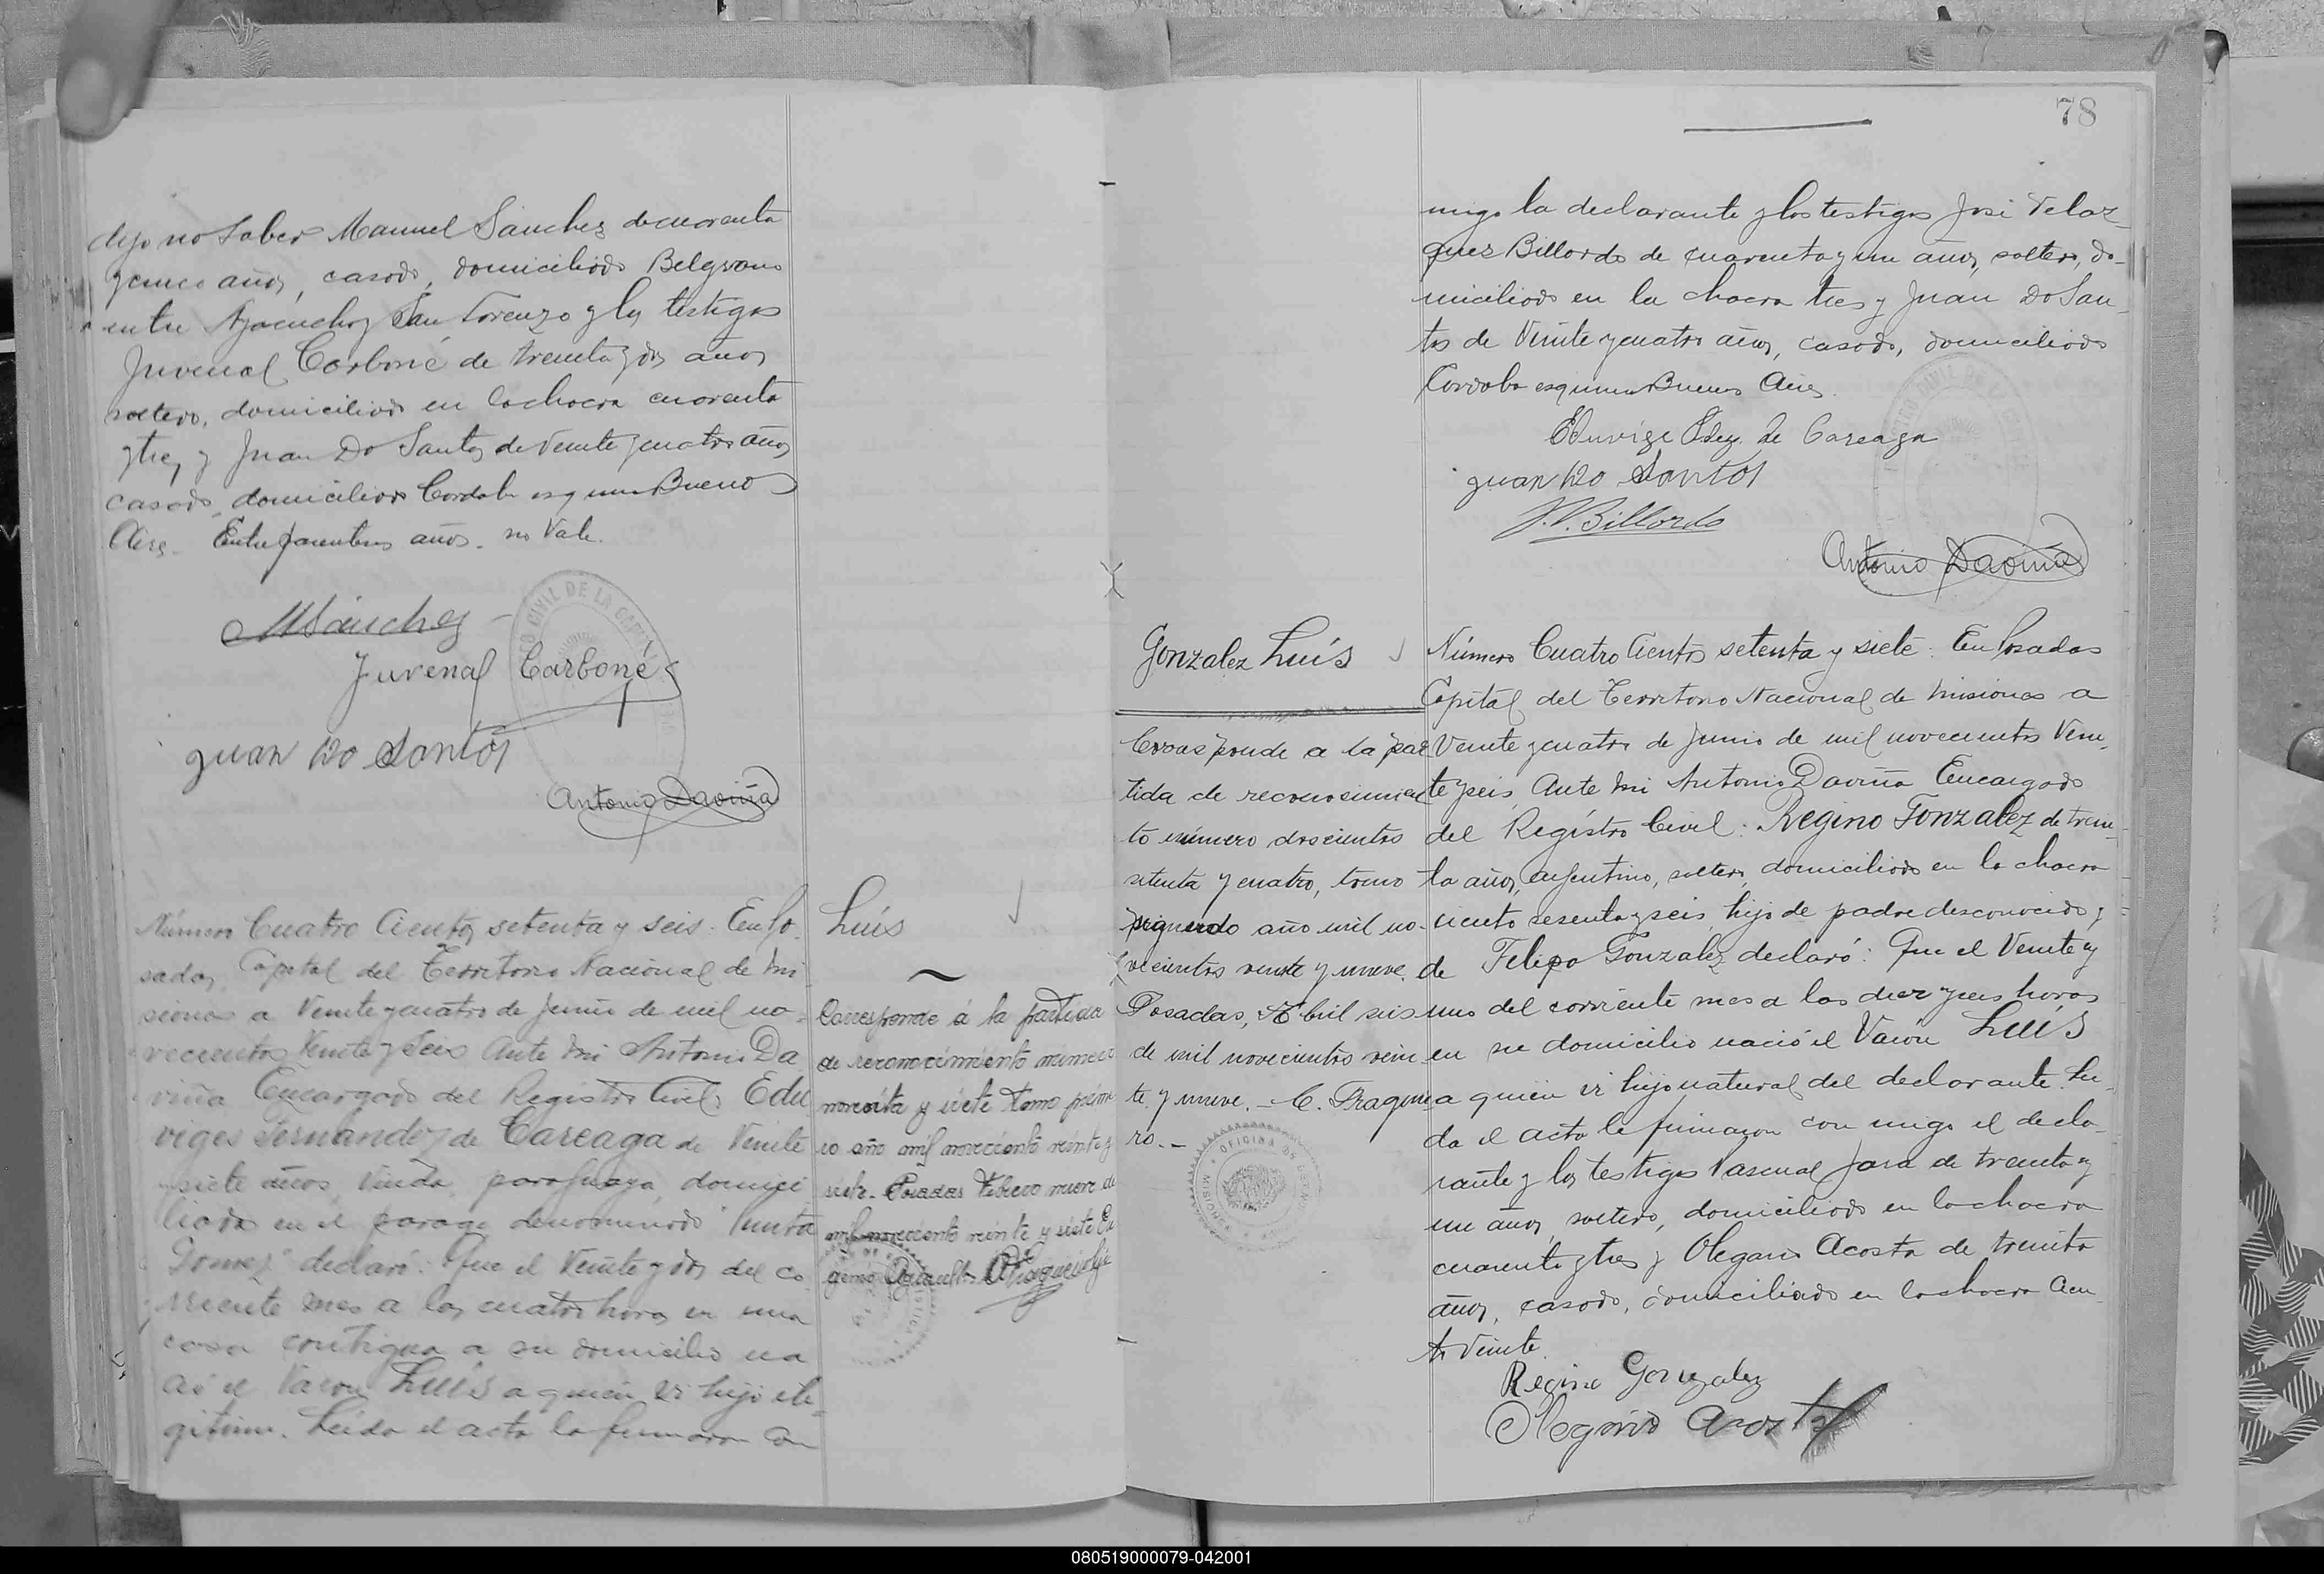 dijo no saber Manuel Sanchez de cuarenta
y cinco años, casado, domiciliado Belgrano
entre Ayacucho y San Lorenzo y los testigos
Juvenal Carboné de treinta y dos años
soltero, domiciliado en la chacra cuarenta
y tres y Juan Do Santos de Veinte y cuatro años
casado, domiciliado Cordoba esquina Buenos
Aires. Entre parentesis años. no Vale.
MSanchez
Juvenal Carboné
Juan Do Santos
Antonio Daviña
Número Cuatro Cientos setenta y seis. En Po
sadas, Capital del Territorio Nacional de Mi
siones a Veinte y cuatro de Junio de mil no
vecientos Veinte y Seis Ante Mi Antonio Da
viña Encargado del Registro Civil: Edu
viges Fernandez de Careaga de Veinte
y siete años, Viuda, paraguaya, domici
liada en el parage denominado "Punta
Gomez" declaró: Que el Veinte y dos del co
rriente mes a las cuatro horas en una
casa contigua a su domicilio na
ció el Varon Luís a quien vi hijo ile
gitimo. Leida el acta la firmaron con
Luís
Corresponde á la partida
de reconocimiento número
noventa y siete tomo prime
ro año mil novecientos veinte y
siete. Posadas Febrero nueve de
mil novecientos veinte y siete
78
migo la declarante y los testigos José Velaz
quez Billordo de cuarenta y un años, soltero, do
miciliado en la chacra tres y Juan Do San
tos de Veinte y cuatro años, casado, domiciliado
Cordoba esquina Buenos Aires.
Eduvige Fdez. de Careaga
Juan Do Santos
J.V. Billordo
Antonio Daviña
Gonzalez Luís
Corresponde a la par
tida de reconocimien
to número doscientos
setenta y cuatro, tomo
segundo año mil no-
vecientos veinte y nueve.
Posadas, Abril seis
de mil novecientos vein
te y nueve. - C. Frague
ro. -
Número Cuatro Cientos setenta y siete. En Posadas
Capital del Territorio Nacional de Misiones a
Veinte y cuatro de Junio de mil novecientos Vein
te y seis, Ante Mi Antonio Daviña Encargado
del Registro Civil: Regino Gonzalez de trein
ta años, argentino, soltero, domiciliado en la chacra
ciento sesenta y seis, hijo de padre desconocido y
de Felipa Gonzalez declaró: Que el Veinte y
uno del corriente mes a las diez y seis horas
en su domicilio nació el Varón Luís
a quien vi hijo natural del declarante. Lei
da el acta la firmaron con migo el decla
rante y los testigos Pascual Jara de treinta y
un años, soltero, domiciliado en la chacra
cuarenta y tres y Olegario Acosta de treinta
años, casado, domiciliado en la chacra cien
to Veinte.
Regino Gonzalez
Olegario Acosta
080519000079-042001